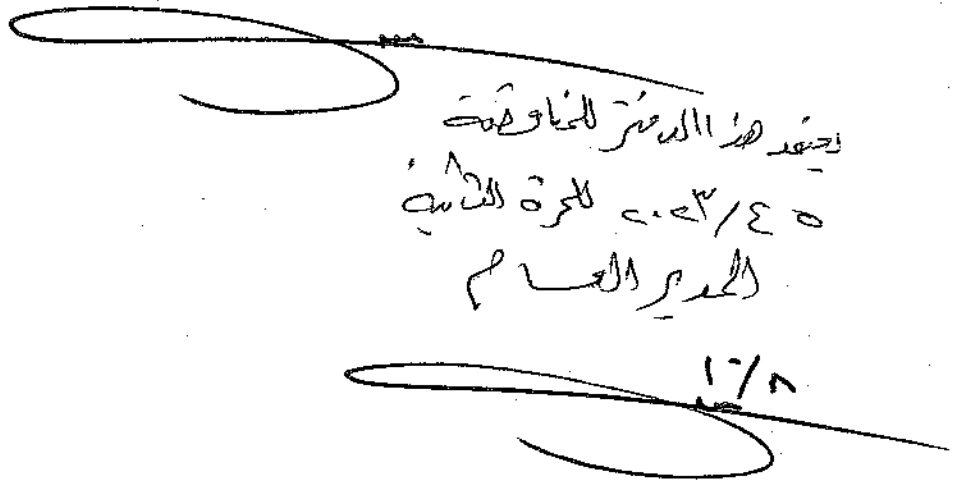 يعتمد هذا الدفتر للمناقصة
٢٠٢٣/٤٥ للمرة الثانية
المدير العام
١٠/٨